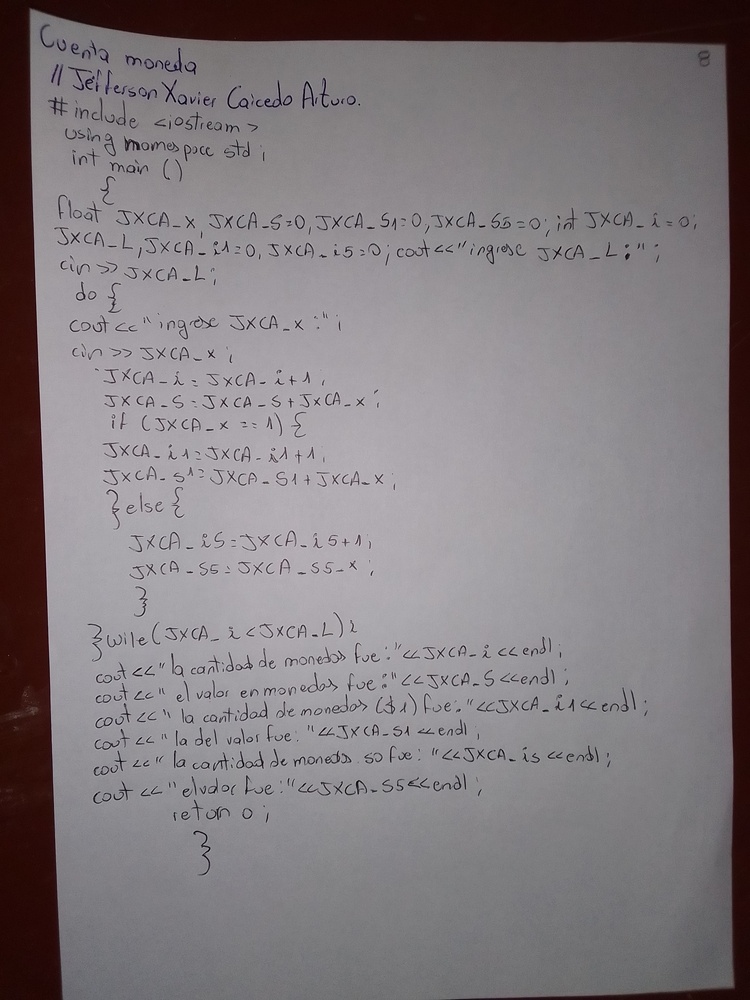 8
Cuenta moneda
// Jefferson Xavier Caicedo Arturo.
# include <iostream>
using momespace std;
int main ()
{
float JXCA_x, JXCA_S=0, JXCA_S1=0, JXCA_S5=0; int JXCA_i=0;
JXCA_L, JXCA_i1=0, JXCA_i5=0; cout<<"ingrese JXCA_L:";
cin>> JXCA_L;
do {
cout<<"ingrese JXCA_x:";
cin>> JXCA_x;
JXCA_i = JXCA_i+1;
JXCA_S = JXCA_S+JXCA_x;
if (JXCA_x == 1) {
JXCA_i1=JXCA_i1+1;
JXCA_S1=JXCA_S1+JXCA_x;
} else {
JXCA_i5=JXCA_i5+1;
JXCA_S5=JXCA_S5-x;
}
} wile(JXCA_i<JXCA_L);
cout<<" la cantidad de monedas fue:"<<JXCA_i<<endl;
cout<<" el valor en monedas fue:"<<JXCA_S<<endl;
cout<<" la cantidad de monedas ($1) fue:"<<JXCA_i1<<endl;
cout<<" la del valor fue: "<<JXCA_S1<<endl;
cout<<" la cantidad de monedas so fue: "<<JXCA_i5<<endl;
cout<<" el valor fue:"<<JXCA_S5<<endl;
return 0;
}